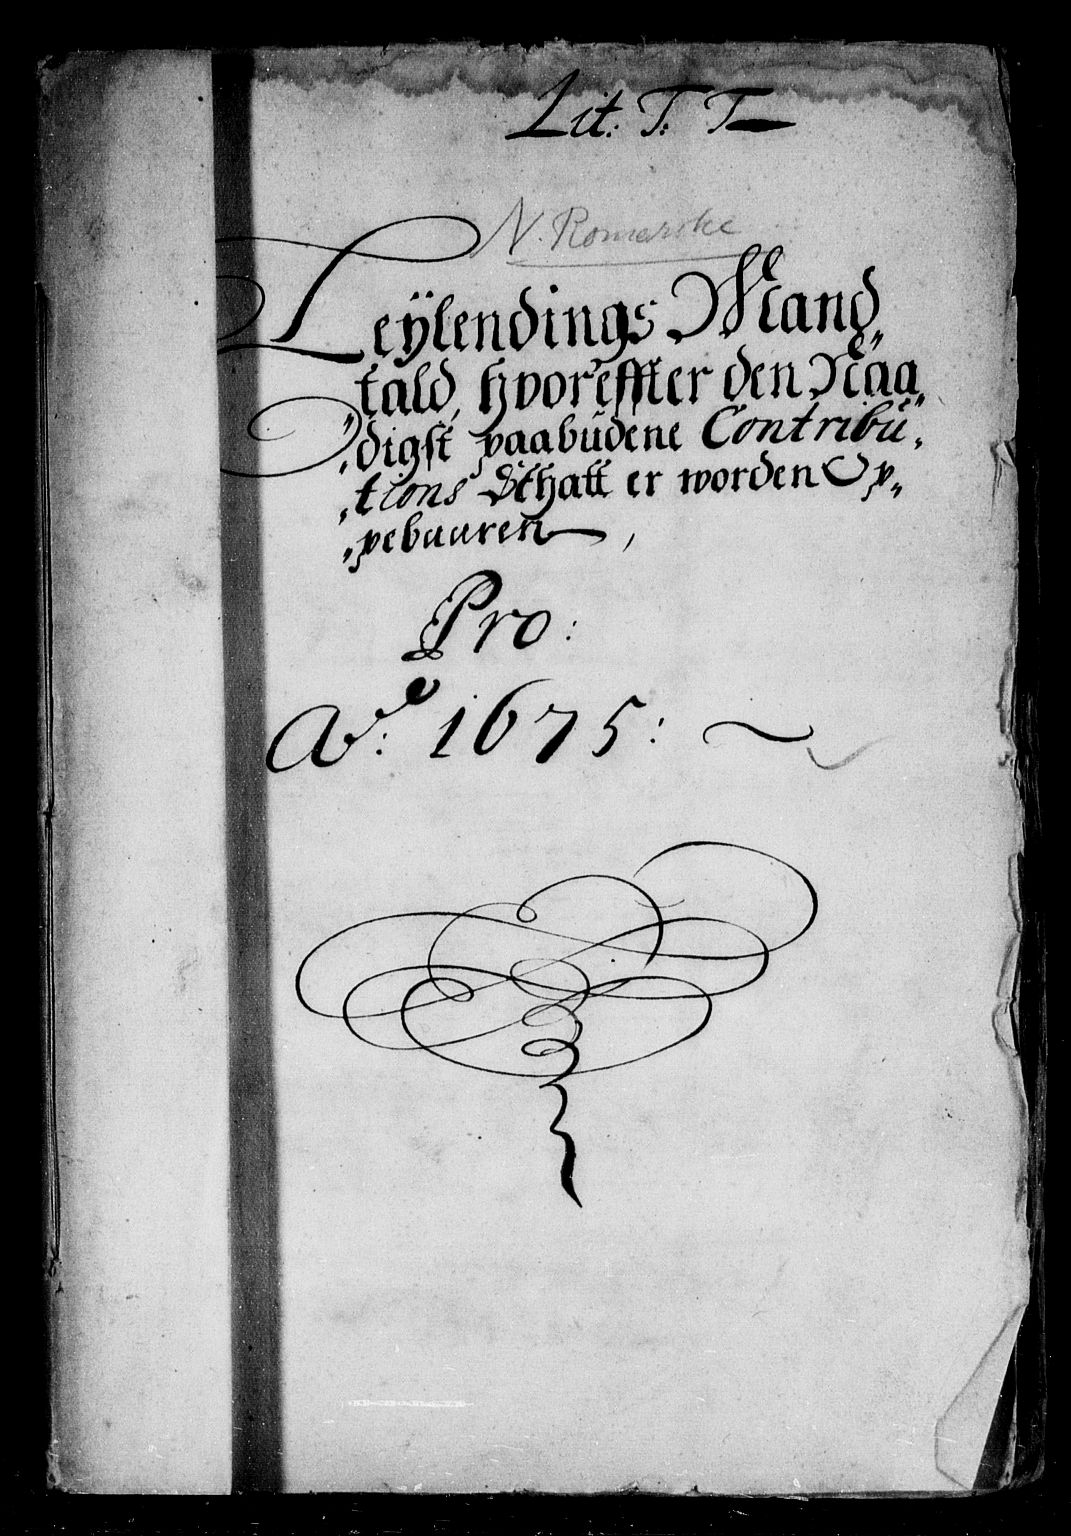 Lit: T: T
N. Romerike
Leÿlendings Mand„
„tald, hvoreffter den Naa„
„digst paabüdene Contribü„
„tions Schatt er worden Op„
„pebaaren,
Pro:
Ao: 1675: